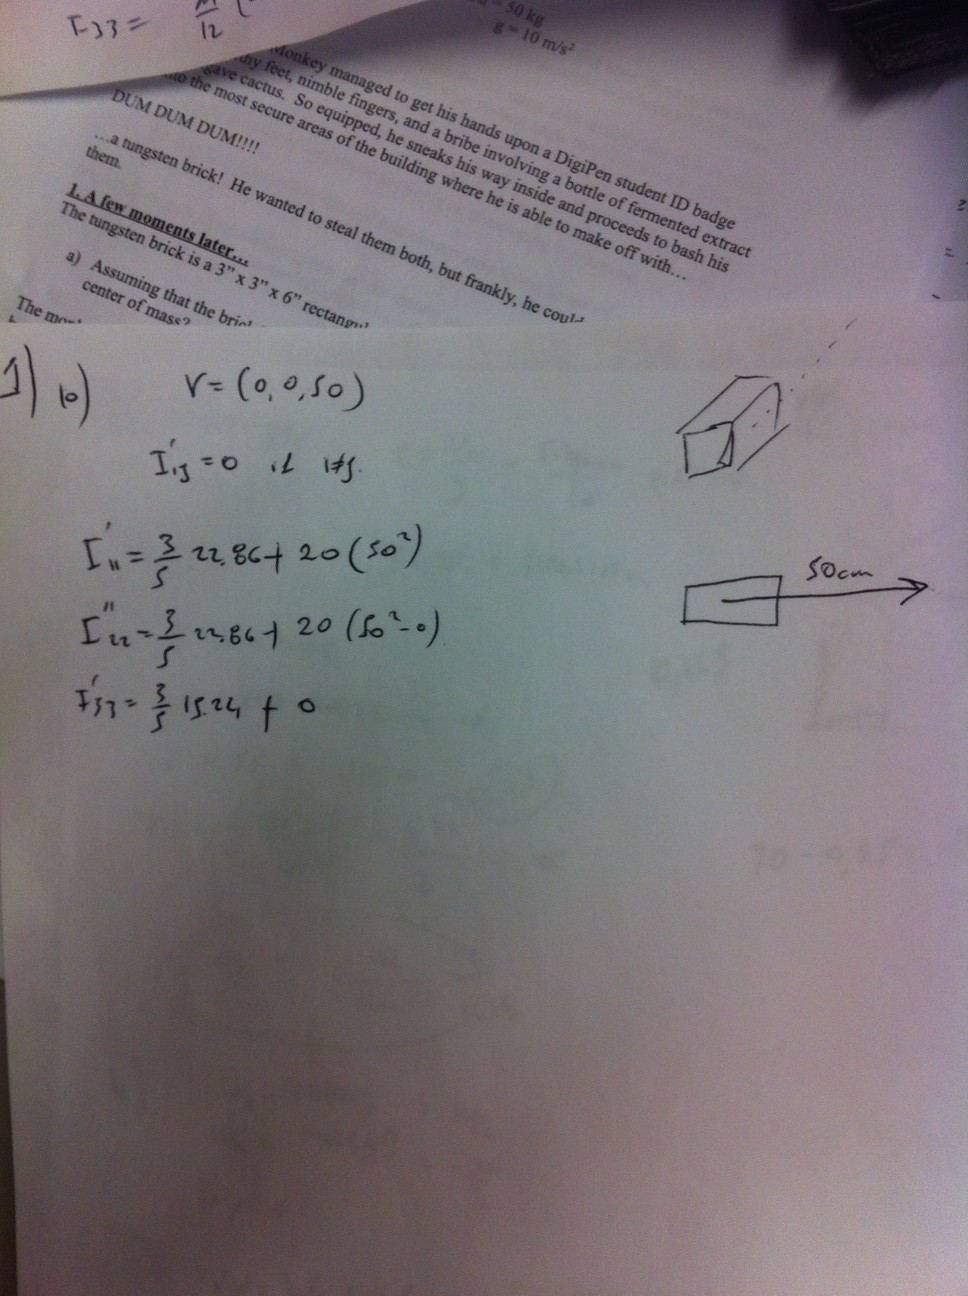 I33 = M/12 (
= 50 kg
g = 10 m/s²
Monkey managed to get his hands upon a DigiPen student ID badge
thy feet, nimble fingers, and a bribe involving a bottle of fermented extract
gave cactus. So equipped, he sneaks his way inside and proceeds to bash his
to the most secure areas of the building where he is able to make off with…
DUM DUM DUM!!!!
…a tungsten brick! He wanted to steal them both, but frankly, he could
them.
1. A few moments later…
The tungsten brick is a 3" x 3" x 6" rectangul
a) Assuming that the bric
center of mass?
The mon
1) b) r = (0, 0, 50)
I'ij = 0 if i≠j.
I'11 = 3/5 22.86 + 20 (50²)
I"22 = 3/5 22.86 + 20 (50² - 0)
50cm
I'33 = 3/5 15.24 + 0